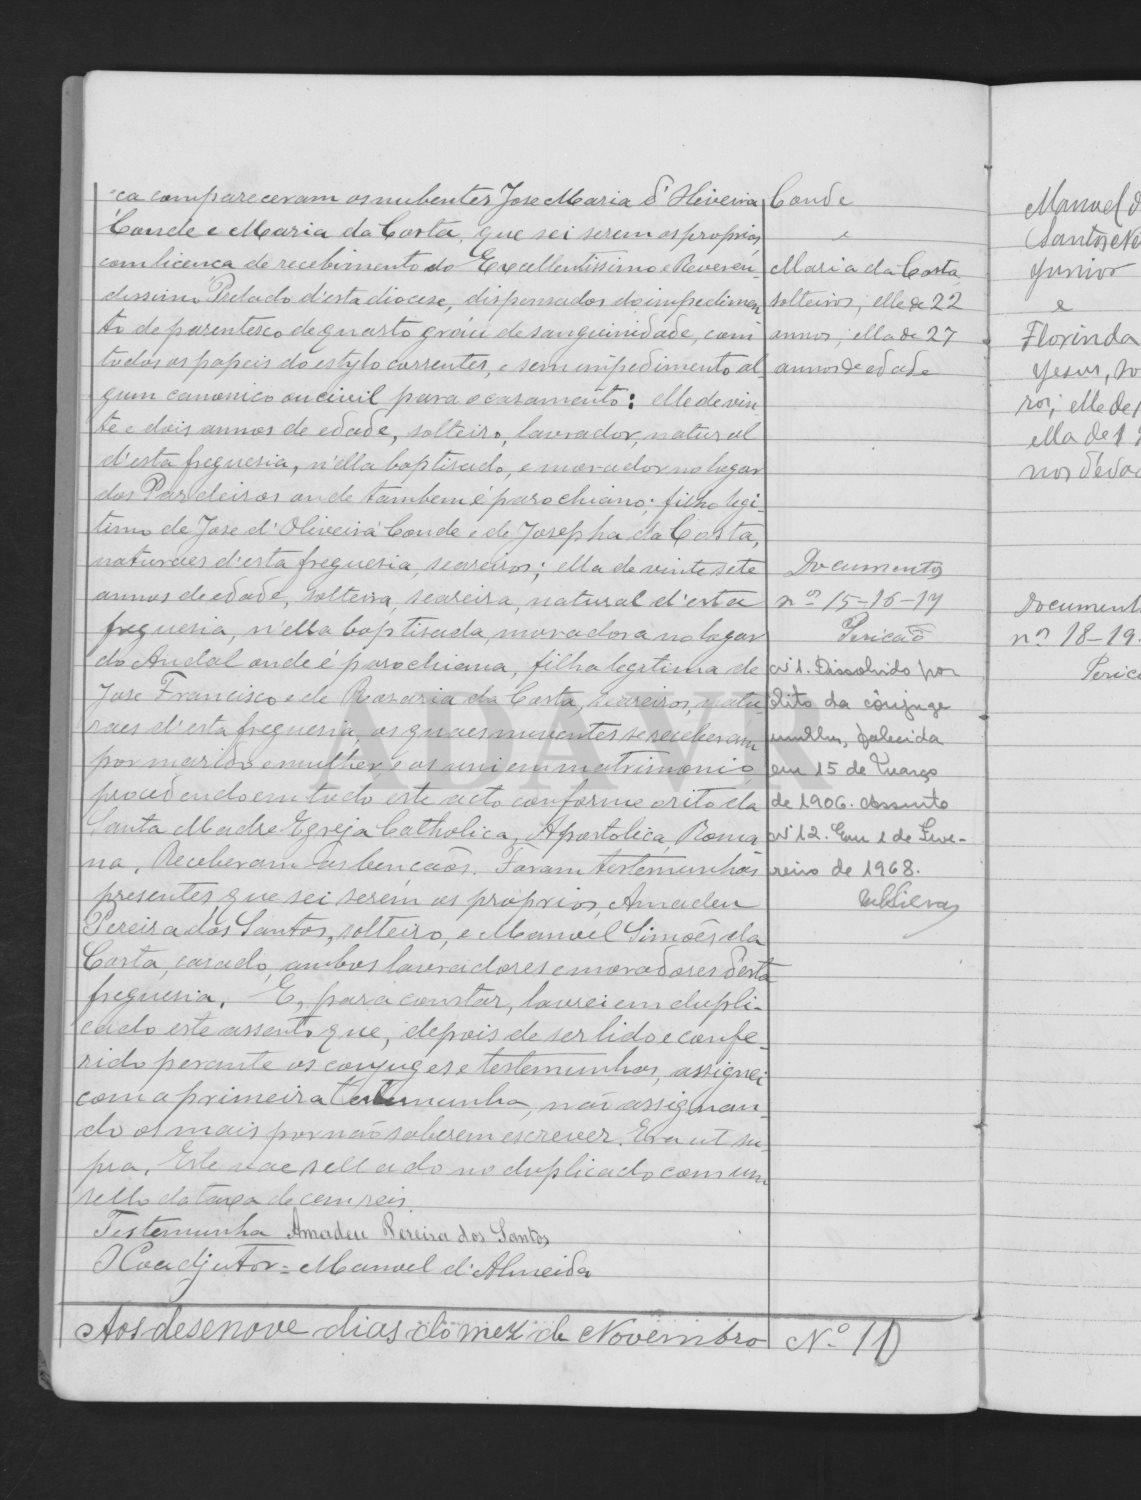 ca compareceram os nubentes Jose Maria d'Oliveira
Conde e Maria da Costa, que sei serem os proprios,
com licença de recebimento do Excellentissimo e Reveren
dissimo Prelado d'esta diocese, dispensados do impedimen
to de parentesco de quarto gráu de sanguinidade, com
todos os papeis do estylo correntes, e sem impedimento al-
gum canonico ou civil para o casamento: elle de vin-
te e dois annos de edade, solteiro, lavrador, natural
d'esta freguesia, n'ella baptisado, e morador no logar
dos Pardeiros onde tambem é parochiano; filho legi-
timo de Jose d'Oliveira Conde e de Josepha da Costa,
naturaes d'esta freguesia, seareiros; ella de vinte sete
annos de edade, solteira, seareira, natural d'esta
freguesia, n'ella baptisada, moradora no logar
do Andal onde é parochiana, filha legitima de
Jose Francisco e de Rosaria da Costa, seareiros, natu-
raes d'esta freguesia, os quaes nubentes se receberam
por marido e mulher, e os uni em matrimonio,
procedendo em tudo este acto conforme o rito da
Santa Madre Egreja Catholica, Apostolica, Roma
na. Receberam as bençãos. Foram testemunhas
presentes que sei serem os proprios, Amadeu
Pereira dos Santos, solteiro, e Manoel Simões da
Costa, casado, ambos lavradores e moradores d'esta
freguesia. E, para constar, lavrei em dupli-
cado este assento que, depois de ser lido e confe-
rido perante os conjuges e testemunhas, assignei
com a primeira testemunha, não assignan-
do os mais por não saberem escrever. Era ut su-
pra. Este vae sellado no duplicado com um
sello da taxa de cem reis.
Testemunha Amadeu Pereira dos Santos
O Coadjutor = Manoel d'Almeida
Aos desenove dias do mez de Novembro
Conde
e
Maria da Costa,
solteiros; elle de 22
annos; ella de 27
annos de edade
Documentos
nos 15-16-17
Nº 1. Dissolvido por
óbito da cônjuge
mulher, falecida
em 15 de Março
de 1906. Assento
Nº 12. Em 1 de Feve-
reiro de 1968.
Nº 10
Manoel d
Santos Ne
Junior
e
Florinda
Jesus, so
ros; elle de
ella de 1
nos d'eda
Document
nos 18-19.
ADAVR